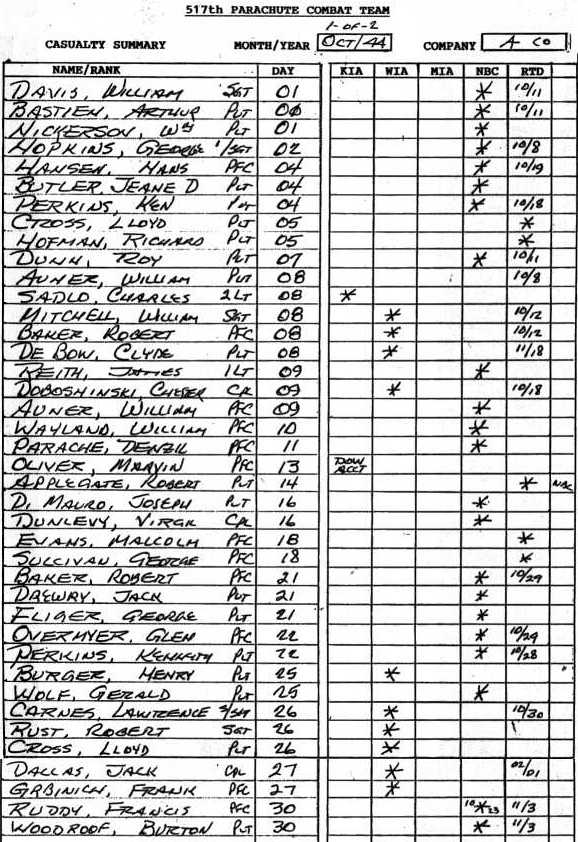 517th PARACHUTE COMBAT TEAM
1-OF-2
CASUALTY SUMMARY MONTH/YEAR OCT/44 COMPANY A CO
NAME/RANK DAY KIA WIA MIA NBC RTD
DAVIS, WILLIAM SGT 01 * 10/11
BASTIEN, ARTHUR PVT * 10/11
NICKERSON, WM PVT 01 *
HOPKINS, GEORGE 1/SGT 02 * 10/8
HANSEN, HANS PFC 04 * 10/19
BUTLER, JEANE D PVT 04 *
PERKINS, KEN PVT 04 * 10/18
CROSS, LLOYD PVT 05 *
HOFMAN, RICHARD PVT 05 *
DUNN, ROY PVT 07 * 10/11
AUNER, WILLIAM PVT 08 10/8
SADLO, CHARLES 2LT 08 *
MITCHELL, WILLIAM SGT 08 * 10/12
BAKER, ROBERT PFC 08 * 10/12
DE BOW, CLYDE PVT 08 * 11/18
KEITH, JAMES 1LT 09 *
DOBOSHINSKI, CHESTER CPL 09 * 10/18
AUNER, WILLIAM PFC 09 *
WAYLAND, WILLIAM PFC 10 *
PARACHE, DENZIL PFC 11 *
OLIVER, MARVIN PFC 13 DOW ACCT
APPLEGATE, ROBERT PVT 14 * NBC
DI MAURO, JOSEPH PVT 16 *
DUNLEVY, VIRGIL CPL 16 *
EVANS, MALCOLM PFC 18 *
SULLIVAN, GEORGE PFC 18 *
BAKER, ROBERT PFC 21 * 10/29
DREWAY, JACK PVT 21 *
FLIGER, GEORGE PVT 21 *
OVERMYER, GLEN PFC 22 * 10/29
PERKINS, KENNETH PVT 22 * 10/28
BURGER, HENRY PVT 25 *
WOLF, GERALD PVT 25 *
CARNES, LAWRENCE S/SGT 26 * 10/30
RUST, ROBERT SGT 26 *
CROSS, LLOYD PVT 26 *
DALLAS, JACK CPL 27 * 02/01
GRBINICH, FRANK PFC 27 *
RUDDY, FRANCIS PFC 30 10*23 11/3
WOODROOF, BURTON PVT 30 * 11/3